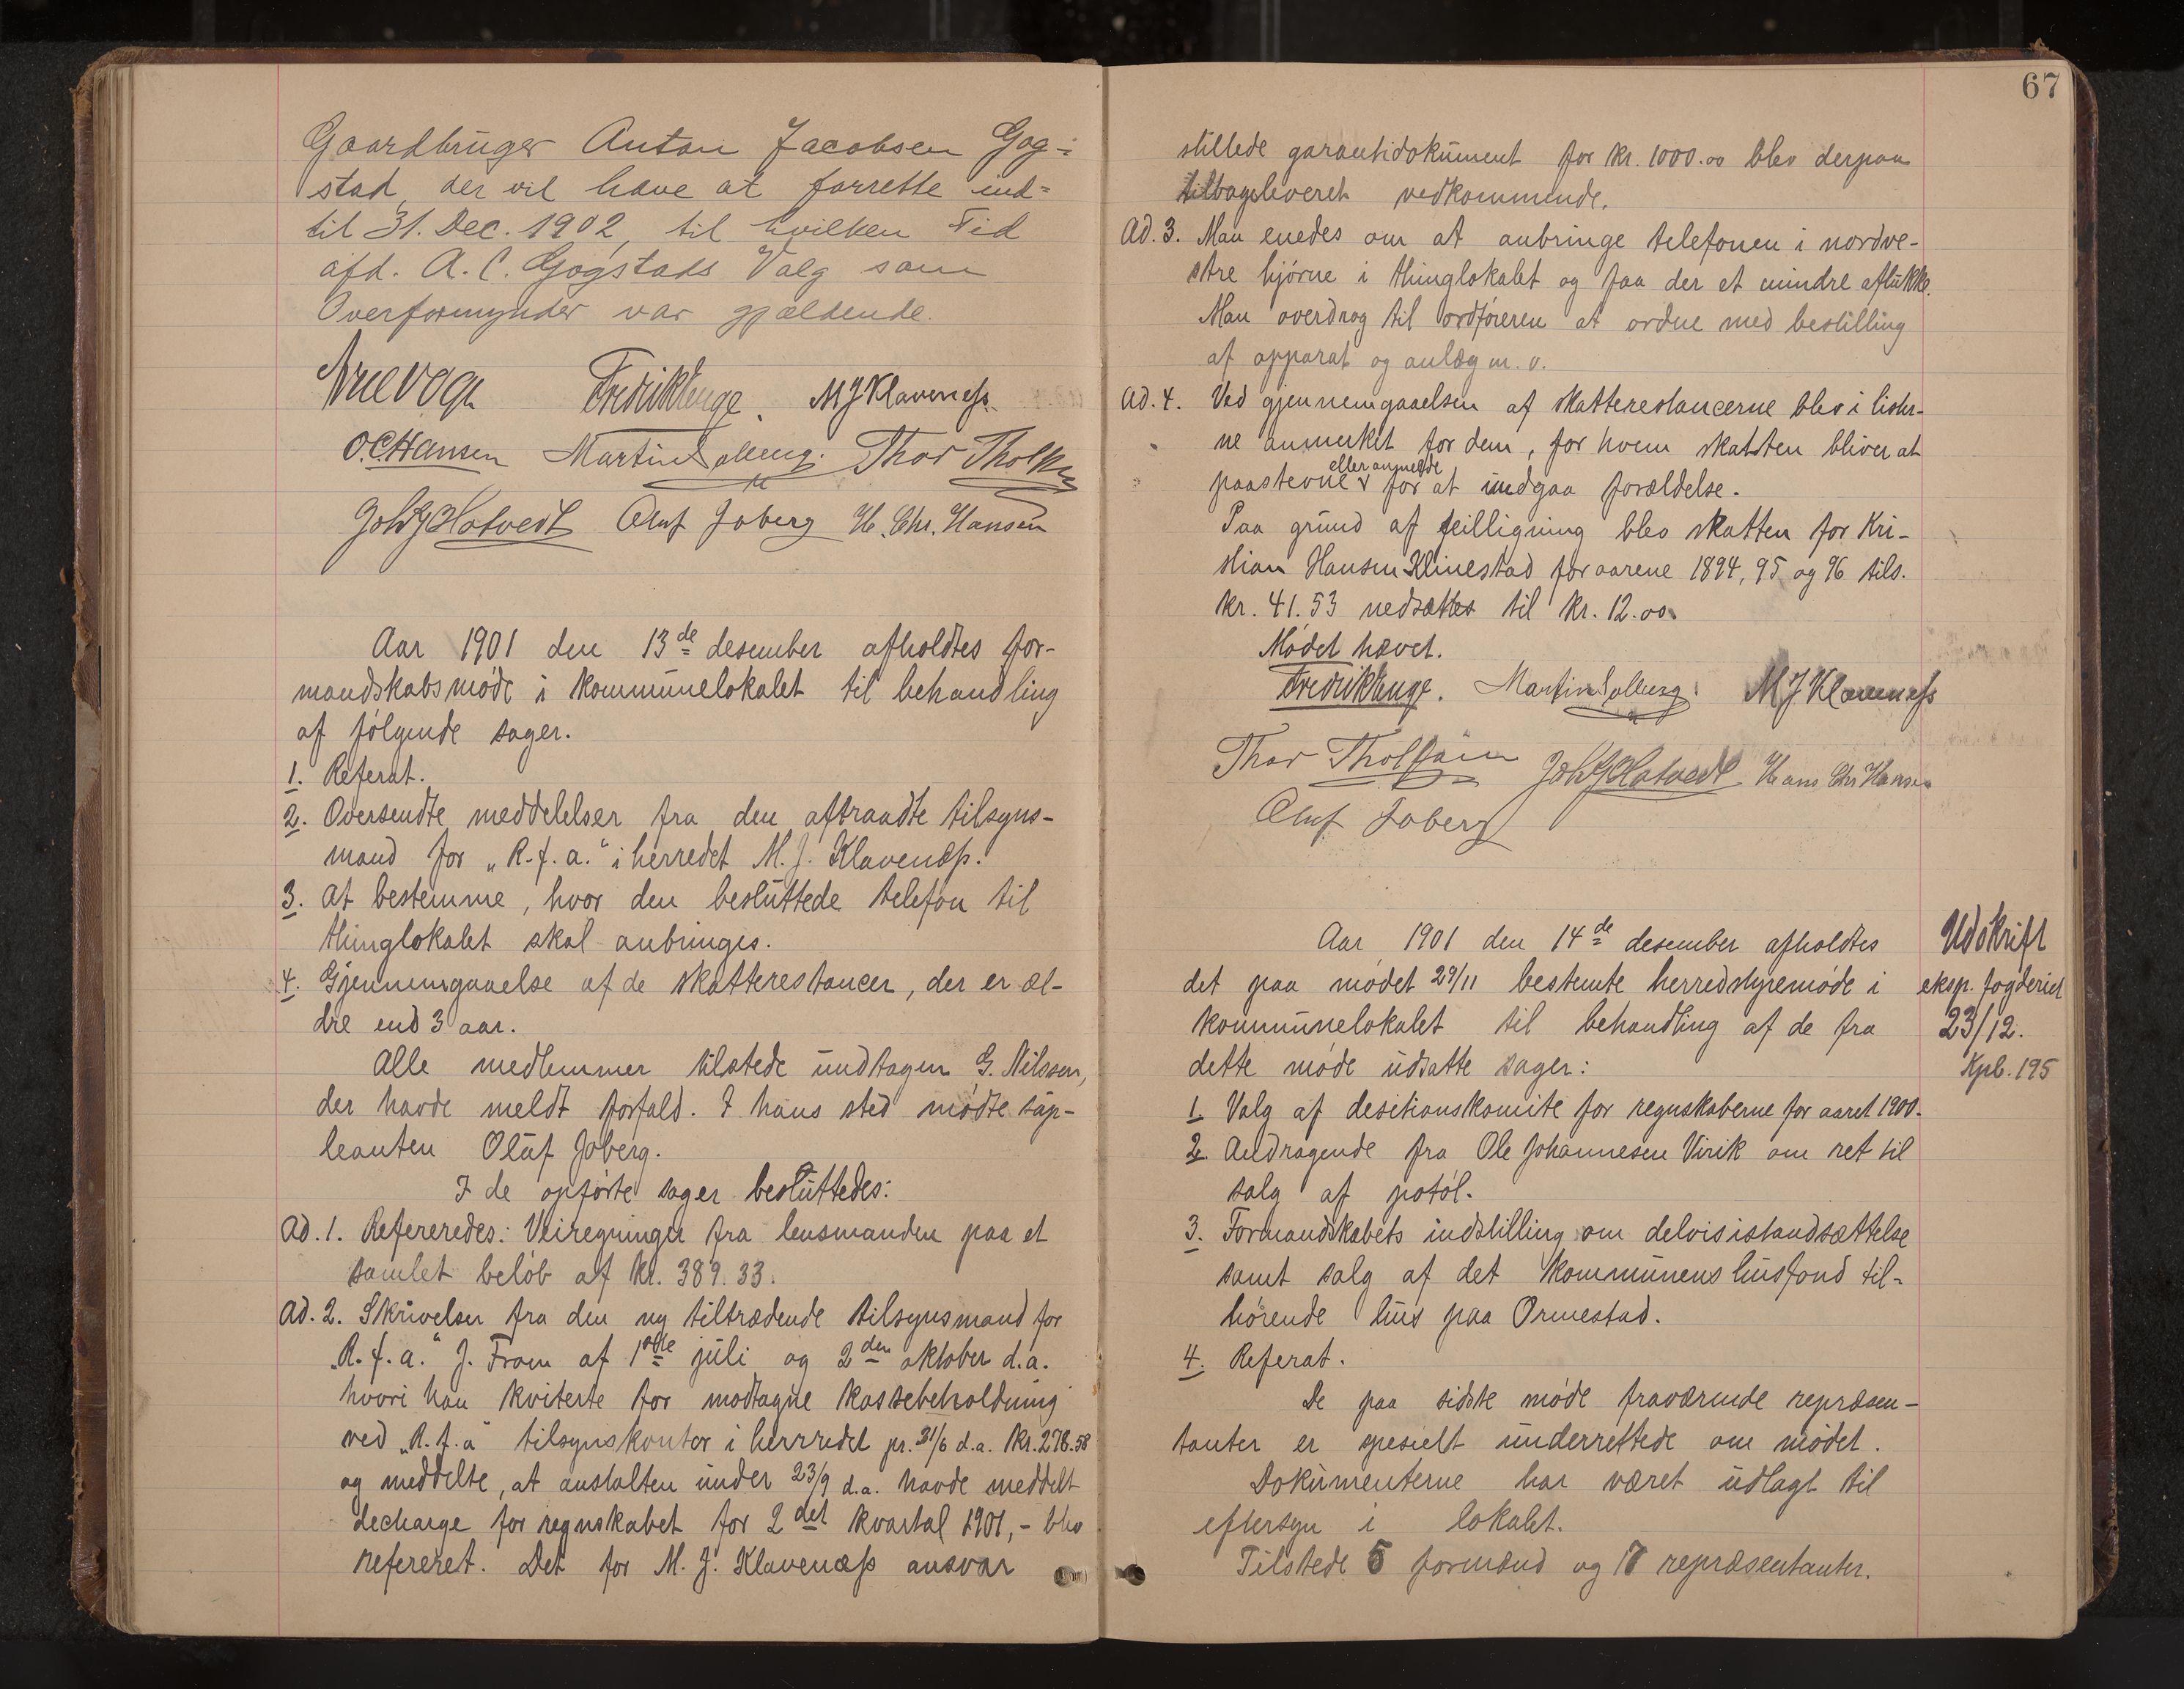 Gaardbruger Anton Jacobsen Gog-
stad, der vil have at forrette ind-
til 31. Dec. 1902, til hvilken Tid
afd. A. C. Gogstads Valg som
Overformynder var gjældende.
Fredrik Lunge. M J Klaveness.
O.C. Hansen Martin Solberg. Thor Tholfsen
Joh Hotvedt Oluf Joberg H. Chr. Hansen
Aar 1901 den 13de desember afholdtes for-
mandskabsmøde i kommunelokalet til behandling
af følgende sager.
1. Referat.
2. Oversendte meddelelser fra den aftraadte tilsyns-
mand for „R.f.a.“ i herredet M. J. Klavenæss.
3. At bestemme, hvor den besluttede telefon til
thinglokalet skal anbringes.
4. Gjennemgaaelse af de skatterestancer, der er æl-
dre end 3 aar.
Alle medlemmer tilstede undtagen G. Nilssen,
der havde meldt forfald. I hans sted mødte sup-
leanten Oluf Joberg.
I de opførte sager besluttedes:
Ad. 1. Refereredes: Veiregninger fra lensmanden paa et
samlet beløb af kr. 389.33.
Ad. 2. Skrivelser fra den ny tiltrædende tilsynsmand for
„R.f.a.“ J. From af 1ste juli og 2den oktober d.a.
hvori han kviterte for modtagne kassebeholdning
ved „R.f.a“ tilsynskontor i herredet pr. 31/6 d.a. kr. 278.58
og meddelte, at anstalten under 23/9 d.a. havde meddelt
decharge for regnskabet for 2det kvartal 1901, - blev
refereret. Det for M. J. Klavenæss ansvar
67
stillede garantidokument for kr. 1000.00 blev derpaa
tilbageleveret vedkommende.
Ad. 3. Man enedes om at anbringe telefonen i nordve-
stre hjørne i thinglokalet og faa der et mindre aflukke.
Man overdrog til ordføreren at ordne med bestilling
af apparat og anlæg m. v.
Ad. 4. Ved gjennemgaaelsen af skatterestancerne blev i lister-
ne anmerket for dem, for hvem skatten bliver at
eller anmelde
paastevne for at undgaa forældelse.
Paa grund af feilligning blev skatten for Kri-
stian Hansen Klinestad for aarene 1894, 95 og 96 tils.
kr. 41.53 nedsættes til kr. 12.00.
Mødet hævet.
Fredrik Lunge. Martin Solberg. M J Klaveness
Thor Tholfsen Joh Hotvedt Hans Chr Hansen
Oluf Joberg
Aar 1901 den 14de desember afholdtes
det paa mødet 29/11 bestemte herredstyremøde i
kommunelokalet til behandling af de fra
dette møde udsatte sager:
Udskrift
eksp. fogderiet
23/12.
Kpb. 195
1. Valg af desitionskomite for regnskaberne for aaret 1900.
2. Andragende fra Ole Johannesen Virik om ret til
salg af potøl.
3. Formandskabets indstilling om delvis istandsættelse
samt salg af det kommunens husfond til-
hørende hus paa Ormestad.
4. Referat.
De paa sidste møde fraværende repræsen-
tanter er spesielt underrettede om mødet.
Dokumenterne har været udlagt til
eftersyn i lokalet.
Tilstede 5 formænd og 17 repræsentanter.